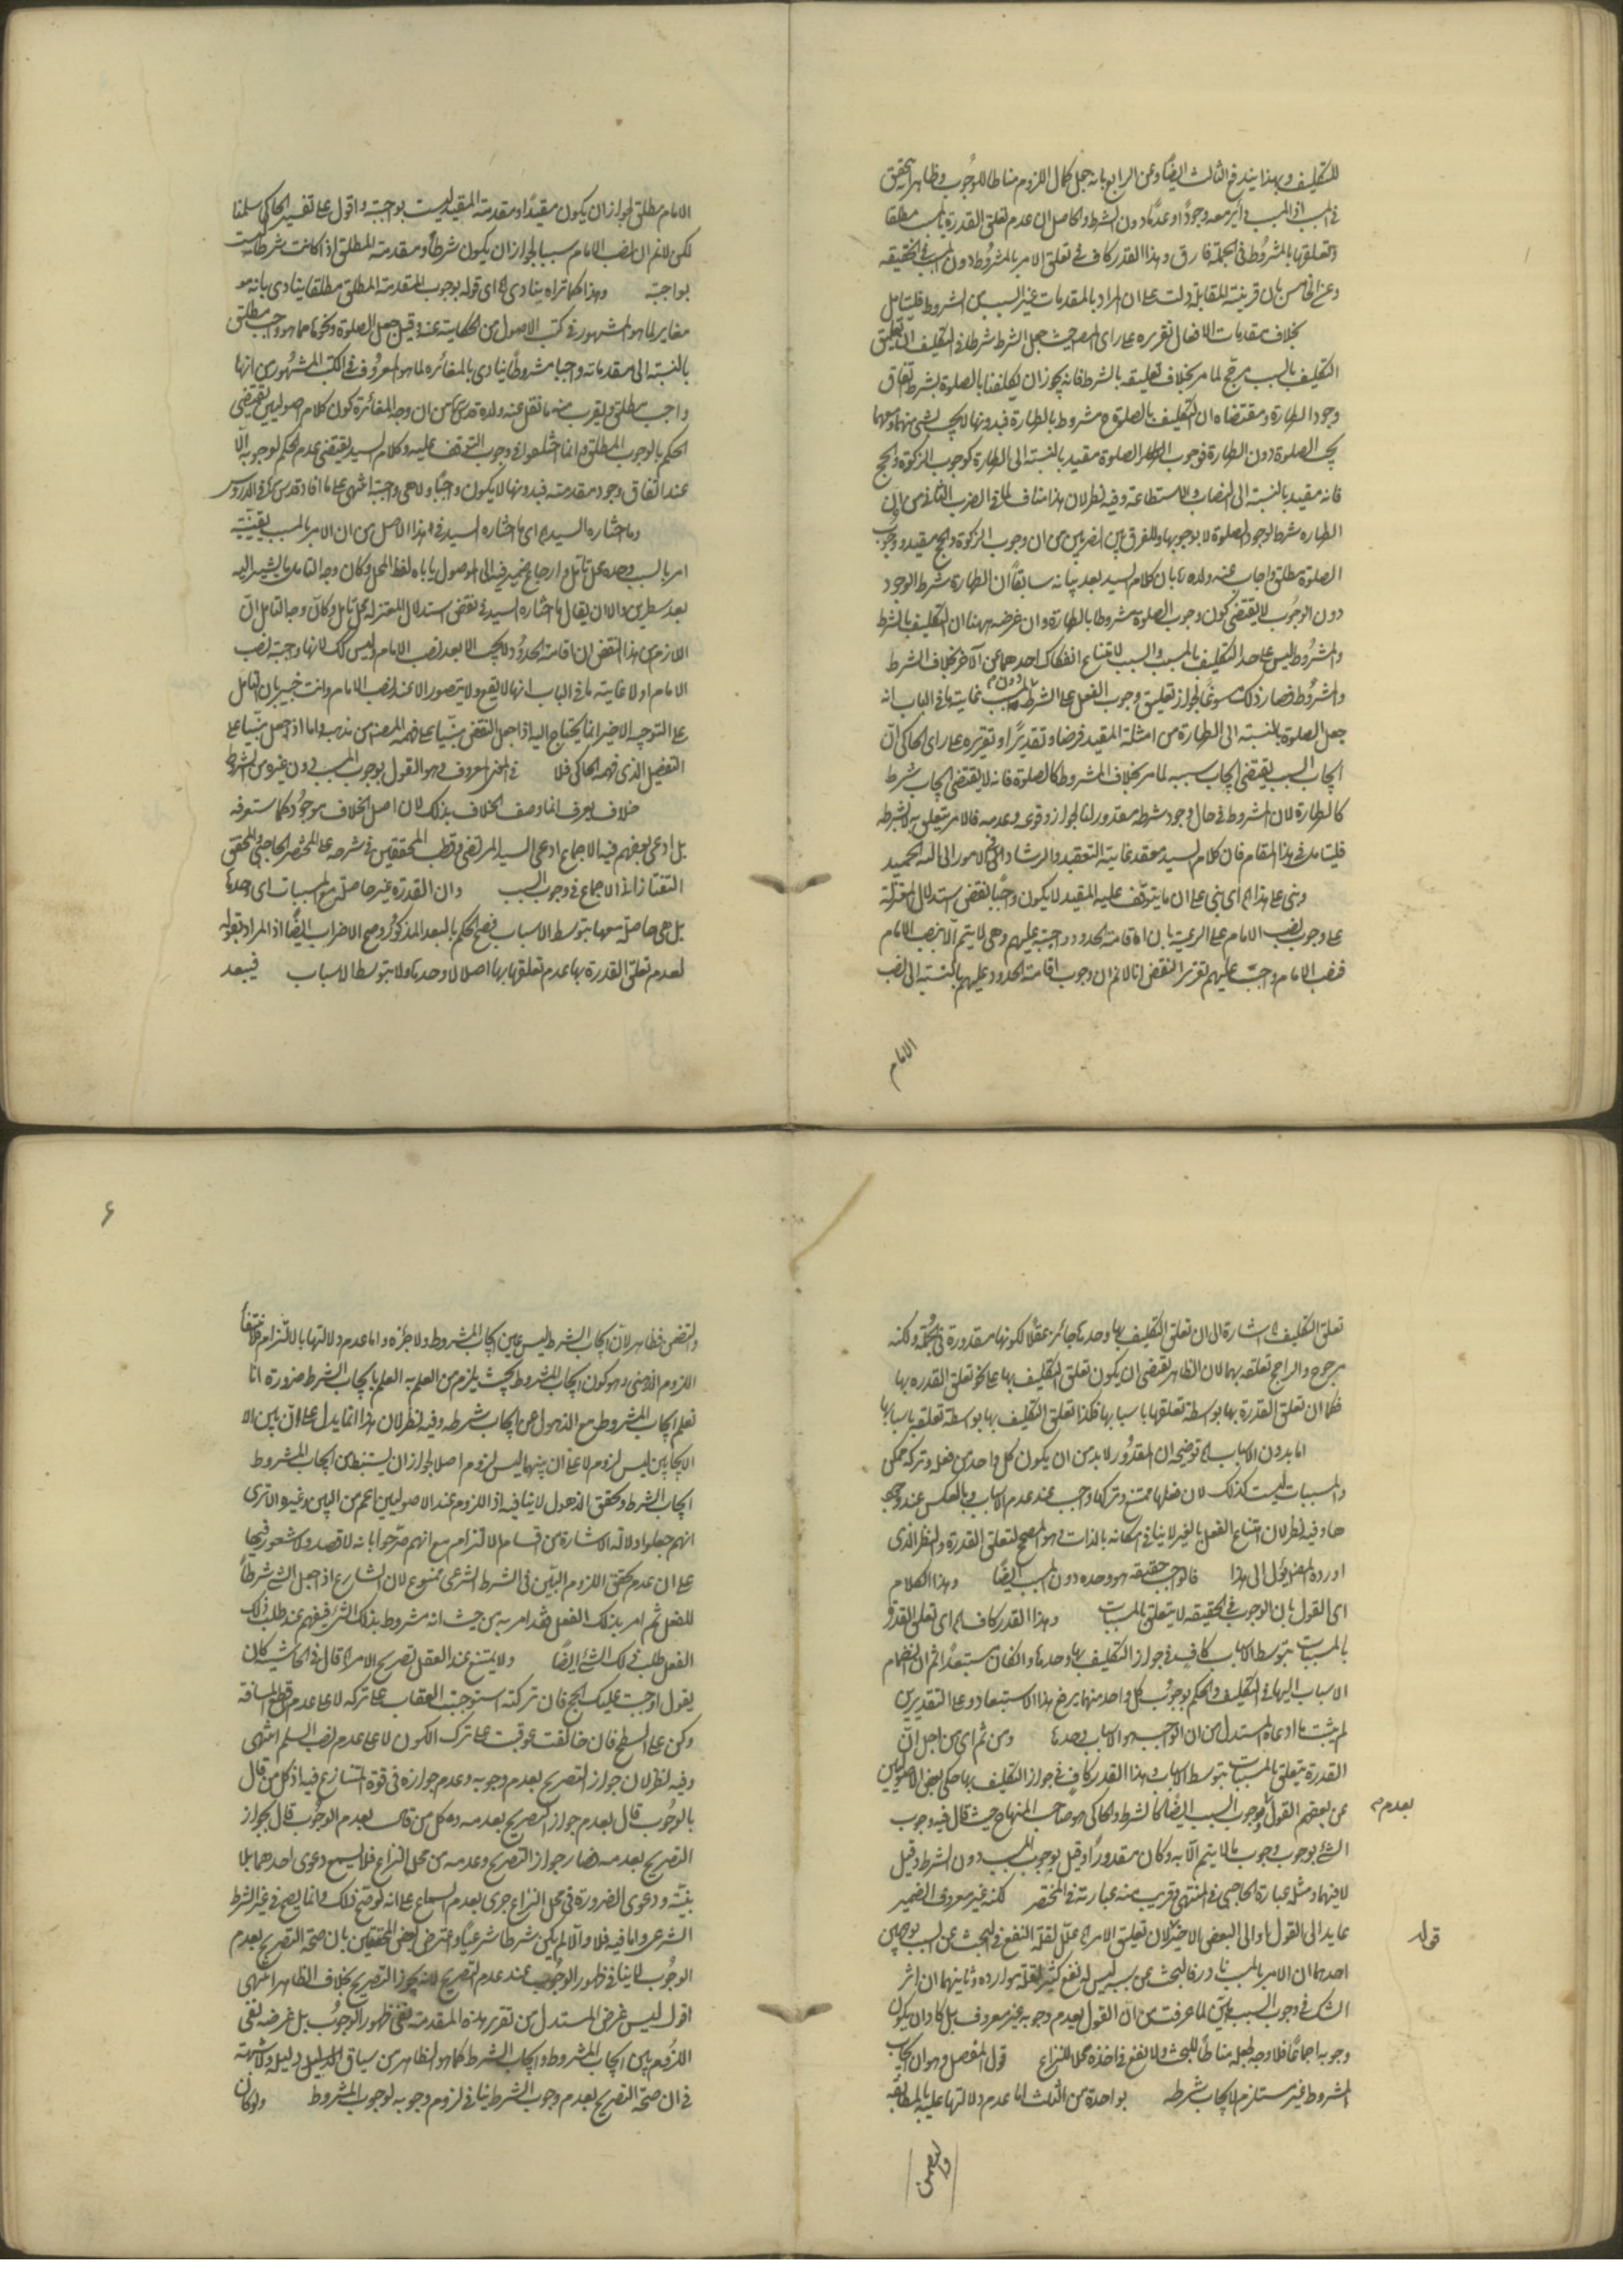 للتكليف وبهذا يندفع الثالث ايضا وعن الرابع بانه جعل كمال اللزوم مناطا للوجوب وظاهر انه تحقق
في السبب اذ المسبب في اثر معه وجودًا وعدمًا دون الشرط والحاصل ان عدم تعلق القدرة بالمسبب مطلقا
وتعلقها بالمشروط في الجملة فارق وهذا القدر كاف في تعلق الامر بالمشروط دون المسبب في الحقيقه
وعن الخامس بان قرينة المقابلة دلت على ان المراد بالمقدمات غير السبب من الشروط فليتامل
بخلاف مقدمات الافعال تقريره على راى المص حيث جعل الشرط شرطا في التكليف ان تعليق
التكليف بالسبب مرجح لما مر بخلاف تعليقه بالشرط فانه يجوز ان يكلفنا بالصلوة بشرط اتفاق
وجود الطهارة ومقتضاه ان التكليف بالصلوة ح مشروط بالطهارة فبدونها لا يجب شئ منهما ومعها
يجب الصلوة دون الطهارة فوجوب الصلوة مقيد بالنسبة الى الطهارة كوجوب الزكوة والحج
فانه مقيد بالنسبة الى النصاب والاستطاعة وفيه نظر لان هذا مناف لما في الضرب الثاني من ان
الطهارة شرط لوجود الصلوة لا بوجوبها وللفرق بين الضربين من ان وجوب الزكوة والحج مقيد ووجوب
الصلوة مطلق واجاب عنه ولده ره بان كلام السيد بعد بيانه سابقًا ان الطهارة شرط الوجود
دون الوجوب لا يقتضي كون وجوب الصلوة مشروطا بالطهارة وان غرضه ههنا ان التكليف بالشرط
والمشروط ليس على حد التكليف بالمسبب والسبب لامتناع انفكاك احدهما عن الآخر بخلاف الشرط
والمشروط فصار ذلك مسوغًا لجواز تعليق وجوب الفعل على الشرط دون السبب غاية ما في الباب انه
جعل الصلوة بالنسبة الى الطهارة من امثلة المقيد فرضا وتقديرًا وتقريره على راى الحاكي ان
ايجاب المسبب يقتضي ايجاب سببه لما مر بخلاف المشروط كالصلوة فانه لا يقتضي ايجاب شرط
كالطهارة لان المشروط في حال وجود شرطه مقدور لنا لجواز وقوعه وعدمه فالامر يتعلق به لا بشرطه
فليتامل في هذا المقام فان كلام السيد معقد غاية التعقيد والرشاد في الامور الى الله الحميد
وبنى على هذا اه اى بني على ان ما يتوقف عليه المقيد لا يكون واجبًا نقض استدلال المعتزلة
على وجوب نصب الامام على الرعية بان اقامة الحدود واجبة عليهم وهي لا يتم الا بنصب الامام
فنصب الامام واجب عليهم تقرير النقض انا لا نم ان وجوب اقامة الحدود عليهم بالنسبة الى نصب
الامام
الامام مطلق لجواز ان يكون مقيدًا ومقدمة المقيد ليست بواجبة واقول على تفسير الحاكي سلمنا
لكن لا نم ان نصب الامام سبب لجواز ان يكون شرطًا ومقدمة المطلق اذا كانت شرطا ليست
بواجبة وهذا كما تراه ينادى اه اى قوله بوجوب المقدمة المطلق مطلقا ينادى بانه هو
مغاير لما هو المشهور في كتب الاصول من الحكاية عنه وقيل جعل الصلوة ونحوها مما هو واجب مطلق
بالنسبة الى مقدماته واجبا مشروطًا ينادى بالمغائره لما هو المعروف في الكتب المشهور من انها
واجب مطلق ويقرب منه ما نقل عنه ولده قدس سره من ان وجه المغائرة كون كلام الاصوليين يقتضي
الحكم بالوجوب المطلق وانما اختلفوا في وجوب التوقف عليه وكلام السيد يقتضي عدم الحكم لوجوبه الا
عند اتفاق وجود مقدمته فبدونها لا يكون واجبًا ولا هي واجبة انتهى على ما افاد قدس سره في الدروس
وما اختاره السيد ره اى ما اختاره السيد في هذا الاصل من ان الامر بالمسبب بعينه
امر بالسبب وحده محل تامل وارجاع ضمير فيه الى الموصول ياباه لفظ المحل وكان وجه التامل ما يشير اليه
بعد سطرين والا ان يقال ما اختاره السيد في نقض استدلال المعتزله محل تامل وكان وجه التامل ان
اللازم من هذا النقض ان اقامة الحدود لا يجب الا بعد نصب الامام وليس كك لانها واجبة نصب
الامام او لا غاية ما في الباب انها لا يقع ولا يتصور الا عند نصب الامام وانت خبير بان التامل
على التوجيه الاخير انما يحتاج اليه اذا جعل النقض مبنيا على ما فهمه المص من مذهبه واما اذا جعل مبنيا على
التفصيل الذى فهمه الحاكي فلا في المعنى المعروف وهو القول بوجوب السبب دون غيره من الشرط
خلاف يعرف انما وصف الخلاف بذلك لان اصل الخلاف موجود كما ستعرفه
بل ادعى بعضهم فيه الاجماع ادعى السيد المرتضى وقطب المحققين في شرحه على المختصر الحاجبي والمحقق
التفتازاني الاجماع في وجوب السبب وان القدرة غير حاصلة مع المسببات اى وحدها
بل هي حاصلة معها بتوسط الاسباب فصح الحكم بالبعد المذكور وصح الاضراب ايضًا اذ المراد بقوله
لعدم تعلق القدرة بها عدم تعلقها بها اصلا لا وحدها ولا بتوسط الاسباب فيبعد
تعلق التكليف اه اشارة الى ان تعلق التكليف بها وحدها جائز عقلًا لكونها مقدورة في الجملة ولكنه
مرجوح والراجح تعلقه بهما لان الظاهر يقتضي ان يكون تعلق التكليف بها على نحو تعلق القدره بها
فكما ان تعلق القدرة بها بواسطة تعلقها باسبابها فكذا تعلق التكليف بها بواسطة تعلقه باسبابها
اما بدون الاسباب اه توضيحه ان المقدور لا بد من ان يكون كل واحد من فعله وتركه ممكن
والمسببات ليست كذلك لان فعلها ممتنع وتركها واجب عند عدم الاسباب وبالعكس عند وجود
ها وفيه نظر لان امتناع الفعل بالغير لا ينافي امكانه بالذات وهو المصحح لتعلق القدرة والنظر الذى
اورده المص يؤل الى هذا فالواجب حقيقة هو وحده دون المسبب ايضًا وهذا الكلام
اى القول بان الوجوب في الحقيقه لا يتعلق بالمسببات وهذا القدر كاف اه اى تعلق القدرة
بالمسببات بتوسط الاسباب كاف في جواز التكليف بها وحدها وان كان مستبعدًا ثم ان انضمام
الاسباب اليها في التكليف والحكم بوجوب كل واحد منهما يرفع هذا الاستبعاد وعلى التقديرين
لم يثبت ما ادعاه المستدل من ان الواجب هو الاسباب وحدها ومن ثم اى من اجل ان
القدرة يتعلق بالمسببات بتوسط الاسباب وهذا القدر كافٍ في جواز التكليف بها حكى بعض الاصوليين
عن بعضهم القول بعدم وجوب السبب ايضًا كالشرط والحاكي هو صاحب المنهاج حيث قال فيه وجوب
بعدم
الشئ بوجوب وجوب ما لا يتم الا به وكان مقدورًا وقيل بوجوب السبب دون الشرط وقيل
لا فيهما ومثله عبارة الحاجبي في المنتهى وقريب منه عبارته في المختصر لكنه غير معروف الضمير
عايد الى القول او الى البعض الاخير لان تعليق الامر اه علل لقلة النفع في البحث عن السبب بوجهين
قوله
احدهما ان الامر بالمسبب نادر فالبحث عن سببه ليس له نفع كثير لقلة موارده وثانيهما ان اثر
الشك في وجوب السبب هين لما عرفت من ان القول بعدم وجوبه غير معروف بل كاد ان يكون
وجوبه اجماعًا فلا وجه لجعله مناطًا للبحث ولا نفع في اخذه محلا للنزاع قول المفصل وهو ان ايجاب
المشروط غير مستلزم لايجاب شرطه بواحدة من الثلث اما عدم دلالتها عليه بالمطابقة
والتضمن
والتضمن فظاهر لان ايجاب الشرط ليس عين ايجاب المشروط ولا جزءه واما عدم دلالتها بالالتزام فلانتفاء
اللزوم الذهني وهو كون ايجاب المشروط بحيث يلزم من العلم به العلم بايجاب الشرط ضرورة انا
نعلم ايجاب المشروط مع الذهول عن ايجاب شرطه وفيه نظر لان هذا انما يدل على ان بين الا
الايجابين ليس لزوم لا على ان بينهما ليس لزوم اصلا لجواز ان يستنبط من ايجاب المشروط
ايجاب الشرط وتحقق الذهول لا ينافيه اذ اللزوم عند الاصوليين اعم من البين وغيره الا ترى
انهم جعلوا دلالة الاشارة من اقسام الالتزام مع انهم صرحوا بانه لا قصد ولا شعور فيها
على ان عدم تحقق اللزوم البيّن في الشرط الشرعى ممنوع لان الشارع اذا جعل الشئ شرطًا
للفعل ثم امر بذلك الفعل فقد امر به من حيث انه مشروط بذلك الشئ فيفهم عند طلب ذلك
الفعل طلب ذلك الشئ ايضًا ولا يمتنع عند العقل تصريح الامر اه قال في الحاشيه كان
يقول اوجبت عليك الحج فان تركته استوجبت العقاب على تركه لا على عدم قطع المسافة
وكن على السطح فان خالفت عوقبت على ترك الكون لا على عدم نصب السلم انتهى
وفيه نظر لان جواز التصريح بعدم وجوبه وعدم جوازه في قوة المتنازع فيه اذ كل من قال
بالوجوب قال بعدم جواز التصريح بعدمه وكل من قال بعدم الوجوب قال بجواز
التصريح بعدمه فصار جواز التصريح وعدمه من محل النزاع فلا يسمع دعوى احدهما بلا
بينة ودعوى الضرورة في محل النزاع جرى بعدم السماع على انه لو صح ذلك فانما يصح في غير الشرط
الشرعى واما فيه فلا والا لم يكن شرطا شرعيًا واعترض بعض المحققين بان صحة التصريح بعدم
الوجوب لا ينافي ظهور الوجوب عند عدم التصريح لانه يجوز التصريح بخلاف الظاهر انتهى
اقول ليس غرض المستدل من تقرير هذه المقدمة نفي ظهور الوجوب بل غرضه نفى
اللزوم بين ايجاب المشروط وايجاب الشرط كما هو الظاهر من سياق الدليل ولا شبهة
في ان صحة التصريح بعدم وجوب الشرط ينافي لزوم وجوبه لوجوب المشروط ولو كان
۶